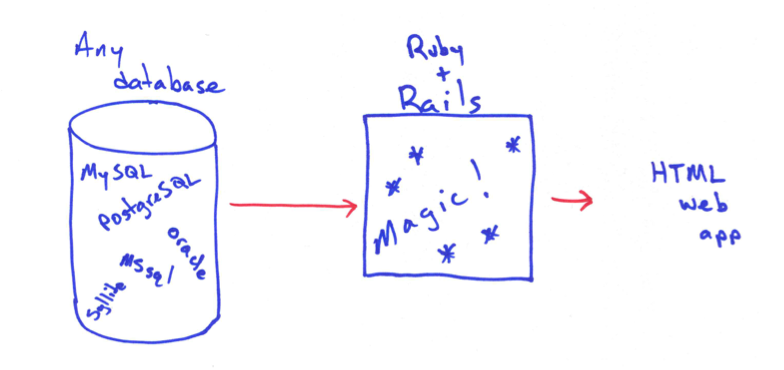 Any
database
MySQL
PostgreSQL
Oracle
MSsql
Sqllite
Ruby
+
Rails
Magic!
HTML
web
app